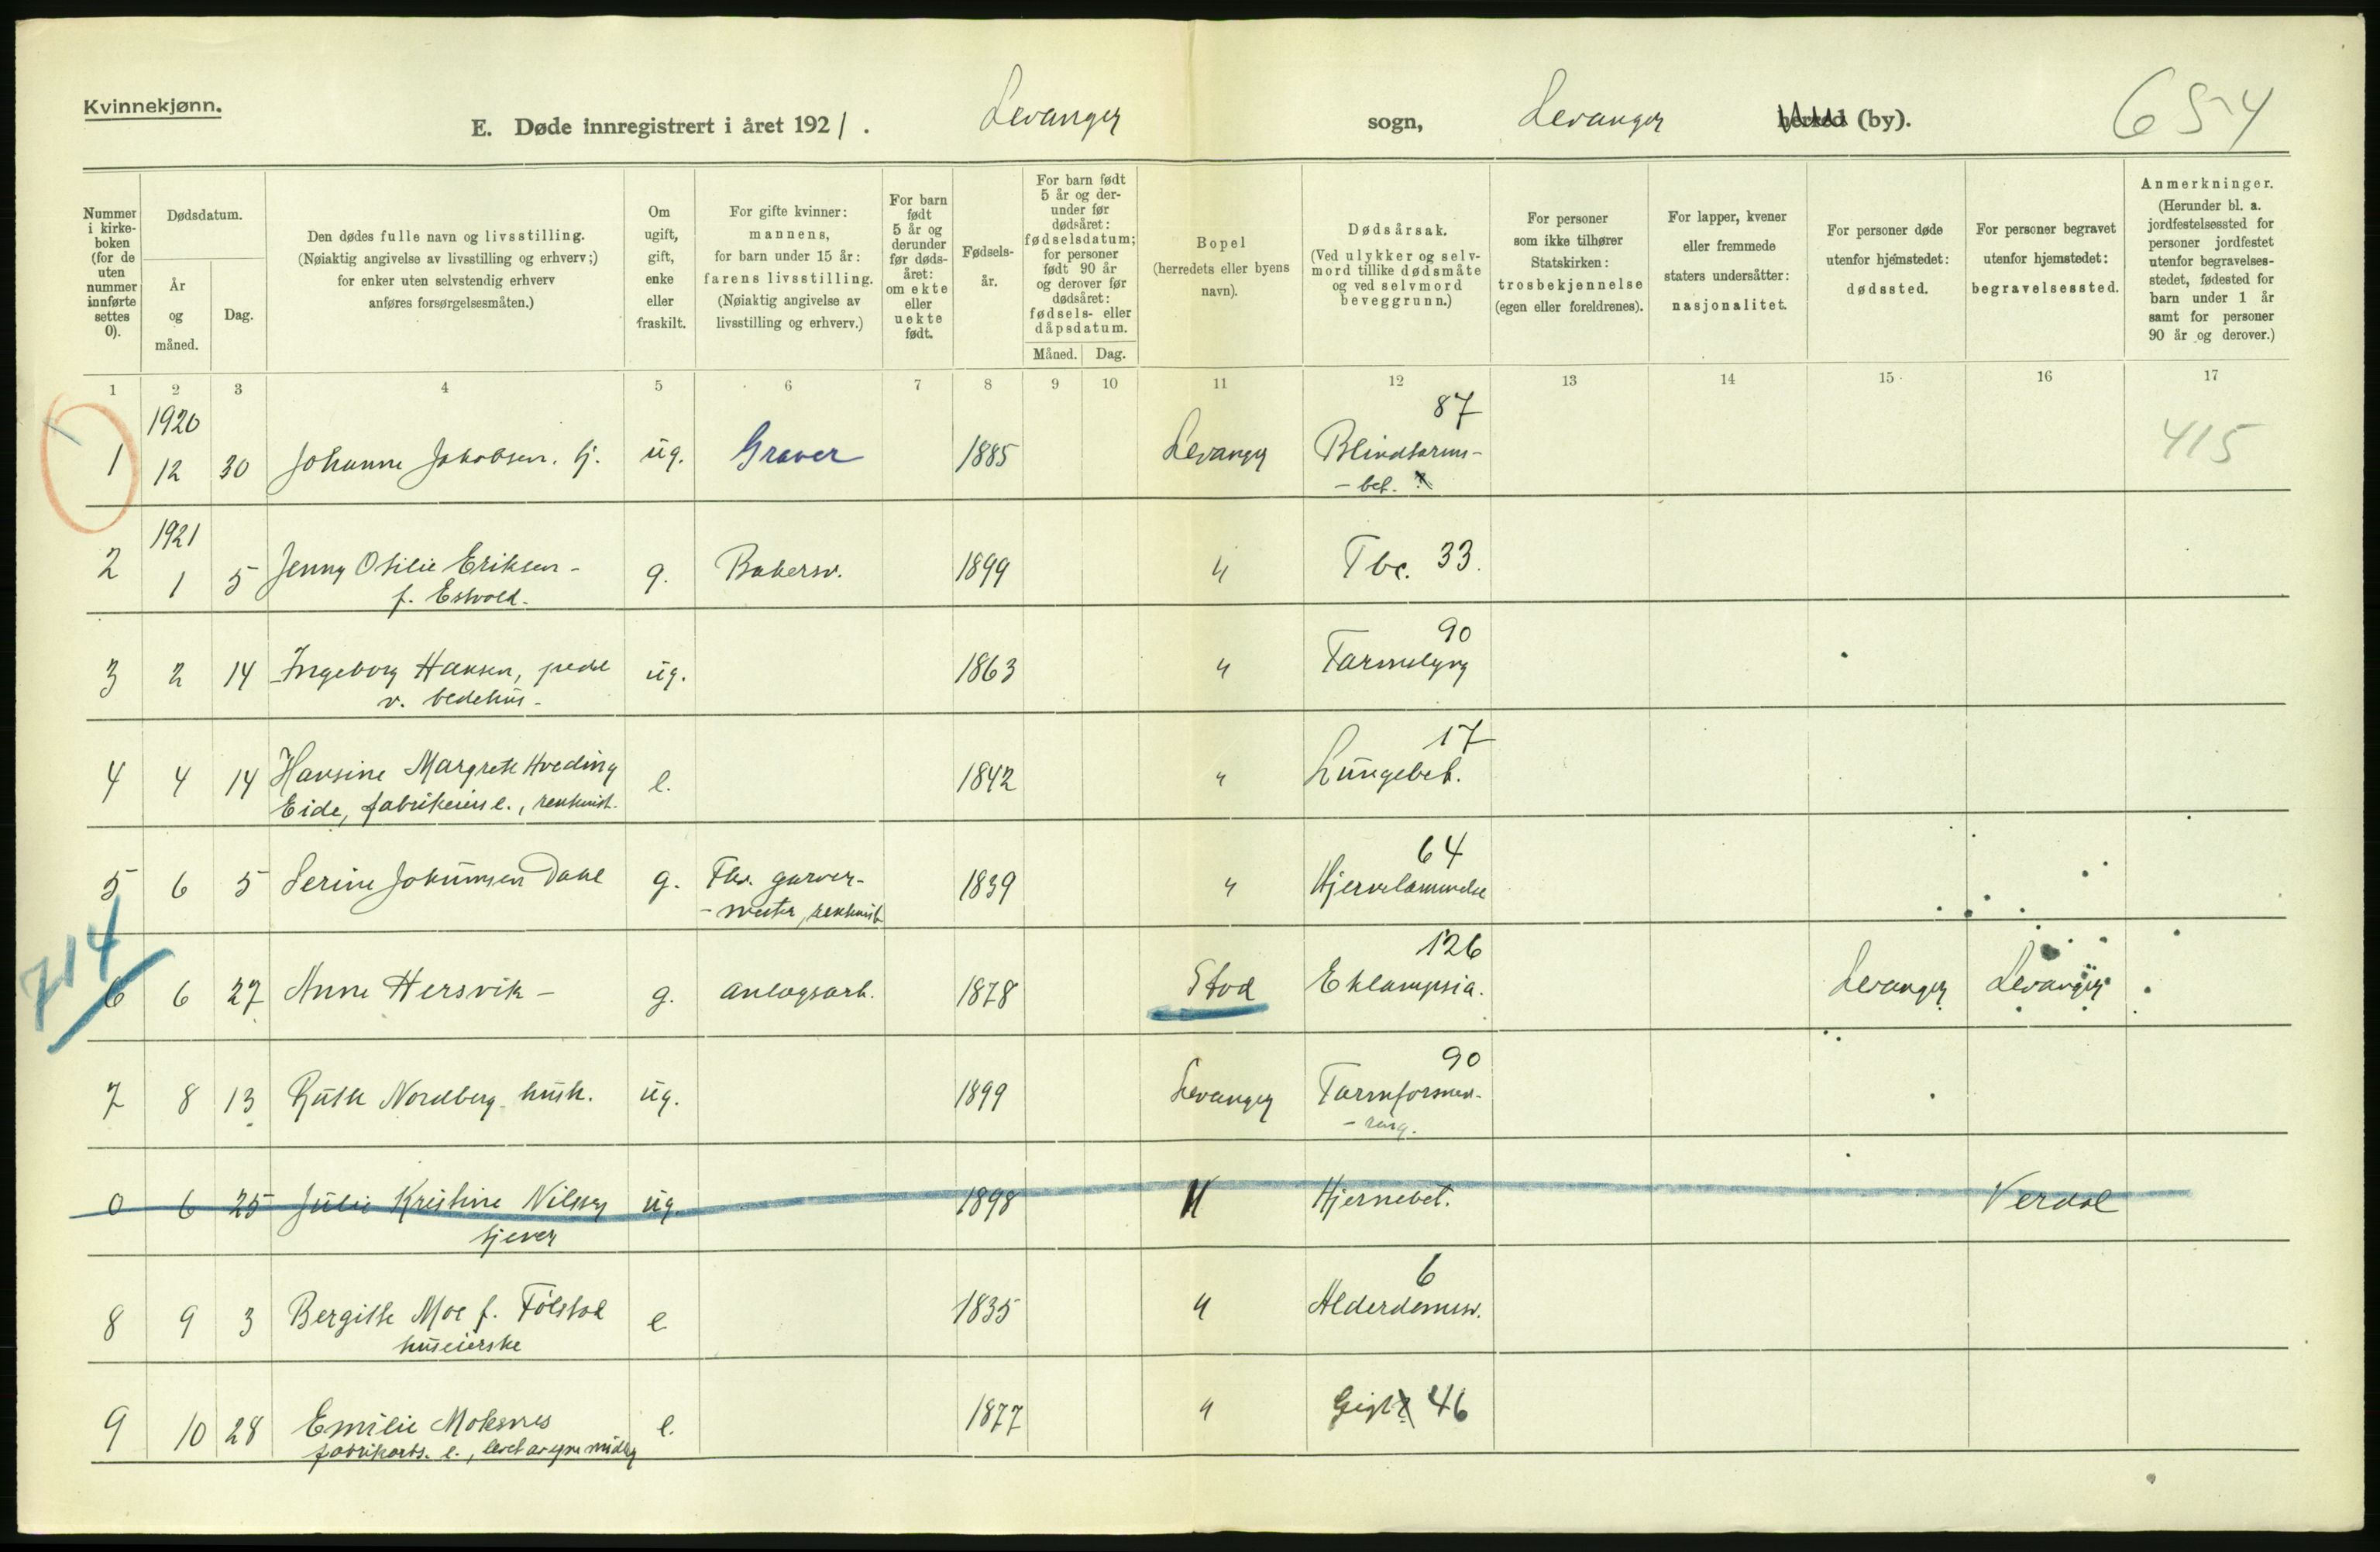 Kvinnekjønn.
E. Døde innregistrert i året 1921. Levanger sogn, Levanger herred (by). 654
Nummer i kirkeboken (for de uten nummer innførte settes 0).
Dødsdatum.
År og måned.
Dag.
Den dødes fulle navn og livsstilling.
(Nøiaktig angivelse av livsstilling og erhverv;)
for enker uten selvstendig erhverv
anføres forsørgelsesmåten.)
Om ugift, gift, enke eller fraskilt.
For gifte kvinner: mannens, for barn under 15 år: farens livsstilling. (Nøiaktig angivelse av livsstilling og erhverv.)
For barn født 5 år og derunder før dødsåret: om ekte eller uekte født.
Fødselsår.
For barn født 5 år og derunder før dødsåret: fødselsdatum; for personer født 90 år og derover før dødsåret: fødsels- eller dåpsdatum.
Måned. Dag.
Bopel (herredets eller byens navn).
Dødsårsak. (Ved ulykker og selvmord tillike dødsmåte og ved selvmord beveggrunn.)
For personer som ikke tilhører Statskirken: trosbekjennelse (egen eller foreldrenes).
For lapper, kvener eller fremmede staters undersåtter: nasjonalitet.
For personer døde utenfor hjemstedet: dødssted.
For personer begravet utenfor hjemstedet: begravelsessted.
Anmerkninger. (Herunder bl. a. jordfestelsessted for personer jordfestet utenfor begravelsesstedet, fødested for barn under 1 år samt for personer 90 år og derover.)
1 2 3 4 5 6 7 8 9 10 11 12 13 14 15 16 17
1920 87
1 12 30 Johanne Jakobsen. tj. ug. Graver 1885 Levanger Blindtarms- 415
- bet. ?
1921
2 1 5 Jenny Otilie Eriksen - g. Bakersv. 1899 " Tbc. 33.
f. Estvold.
90
3 2 14 Ingeborg Hansen, ug. 1863 " Tarmslyng
v. bedehus -
17
4 4 14 Hansine Margrete Hveding e. 1842 " Lungebet.
Eide, fabrikeiers e., rentenist.
64
5 6 5 Serine Johannsen Dahl g. Fhv. garver- 1839 " Hjertelammelse
- mester, rentenist
714 126
6 6 27 Anne Hersvik - g. anlagsarb. 1878 Stod Eklampsia. Levanger Levanger
90
7 8 13 Ruth Nordberg hush. ug. 1899 Levanger Tarmforsnev-
- ring.
0 6 25 Julie Kristine Nilsen ug. 1898 " Hjernebet. Verdal
tjener
6
8 9 3 Bergitte Moe f. Tølstol e 1835 " Alderdomssv.
huseierske
9 10 28 Emilie Moksnes e. 1877 " Gigt ? 46
fabrikarb. e., levet av egne midler